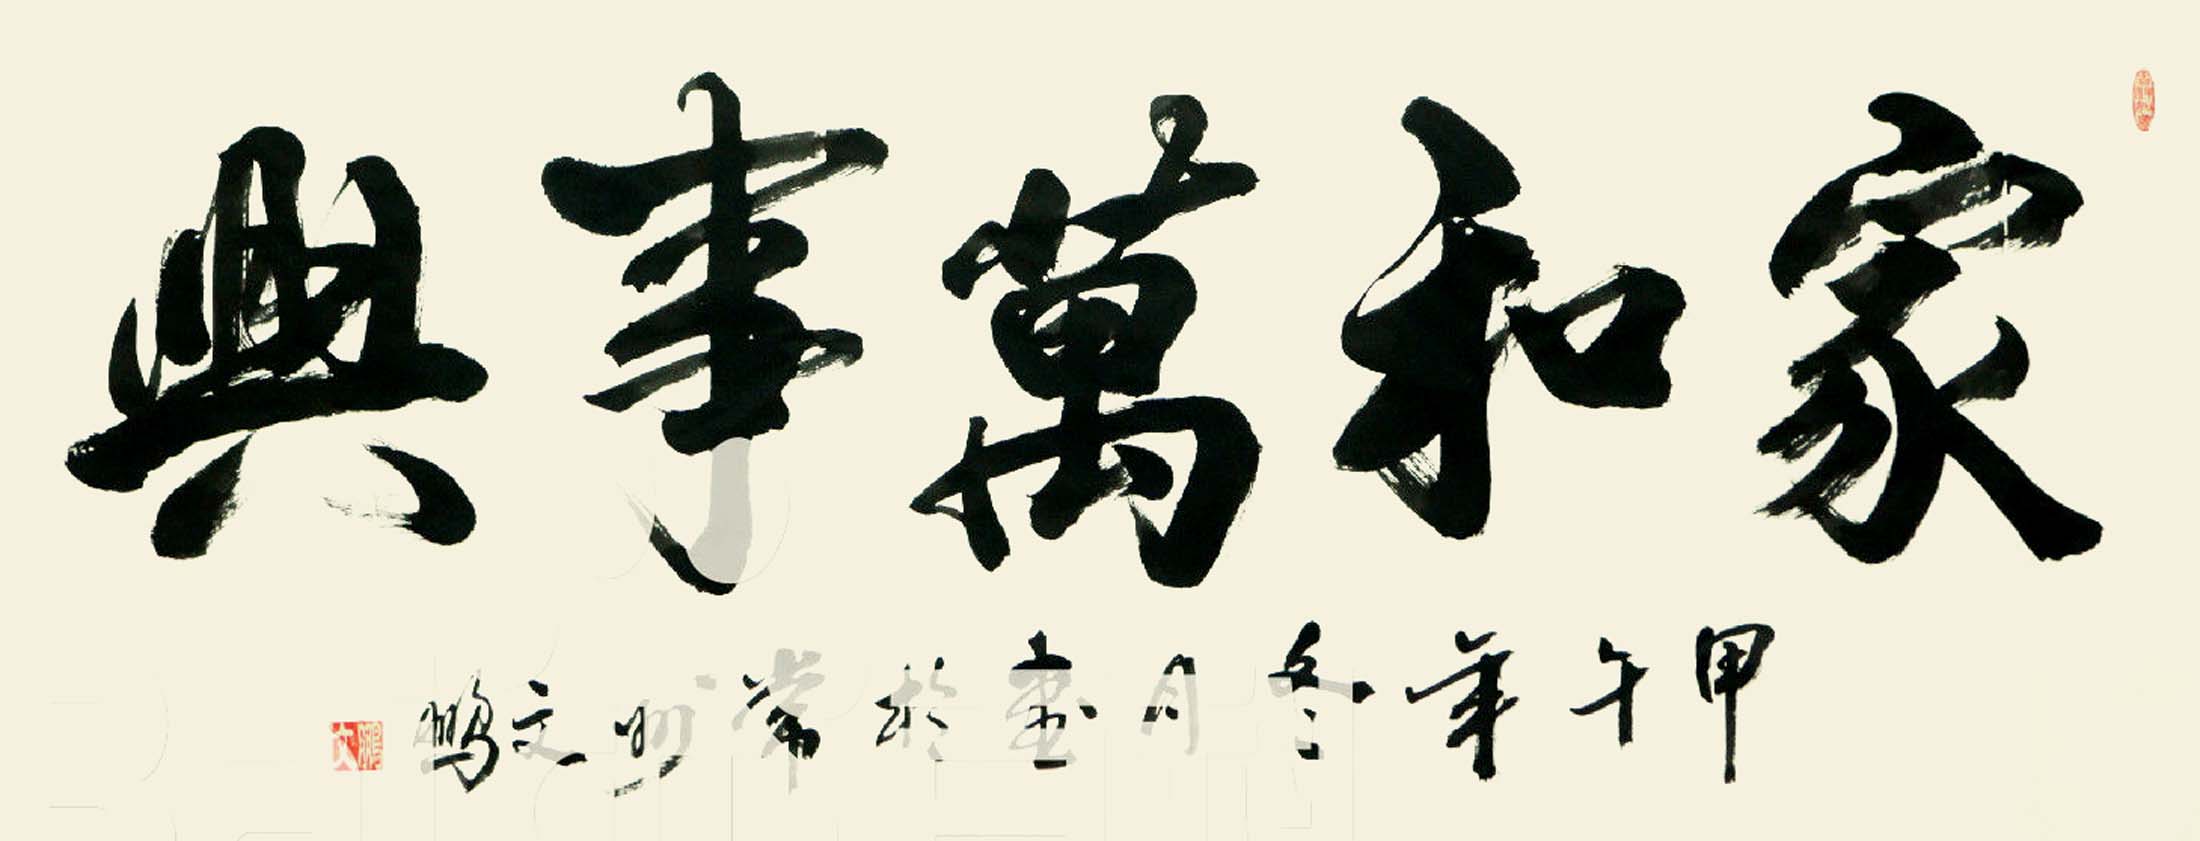 家和萬事興
甲午年冬月書於常州文鵬
文鵬